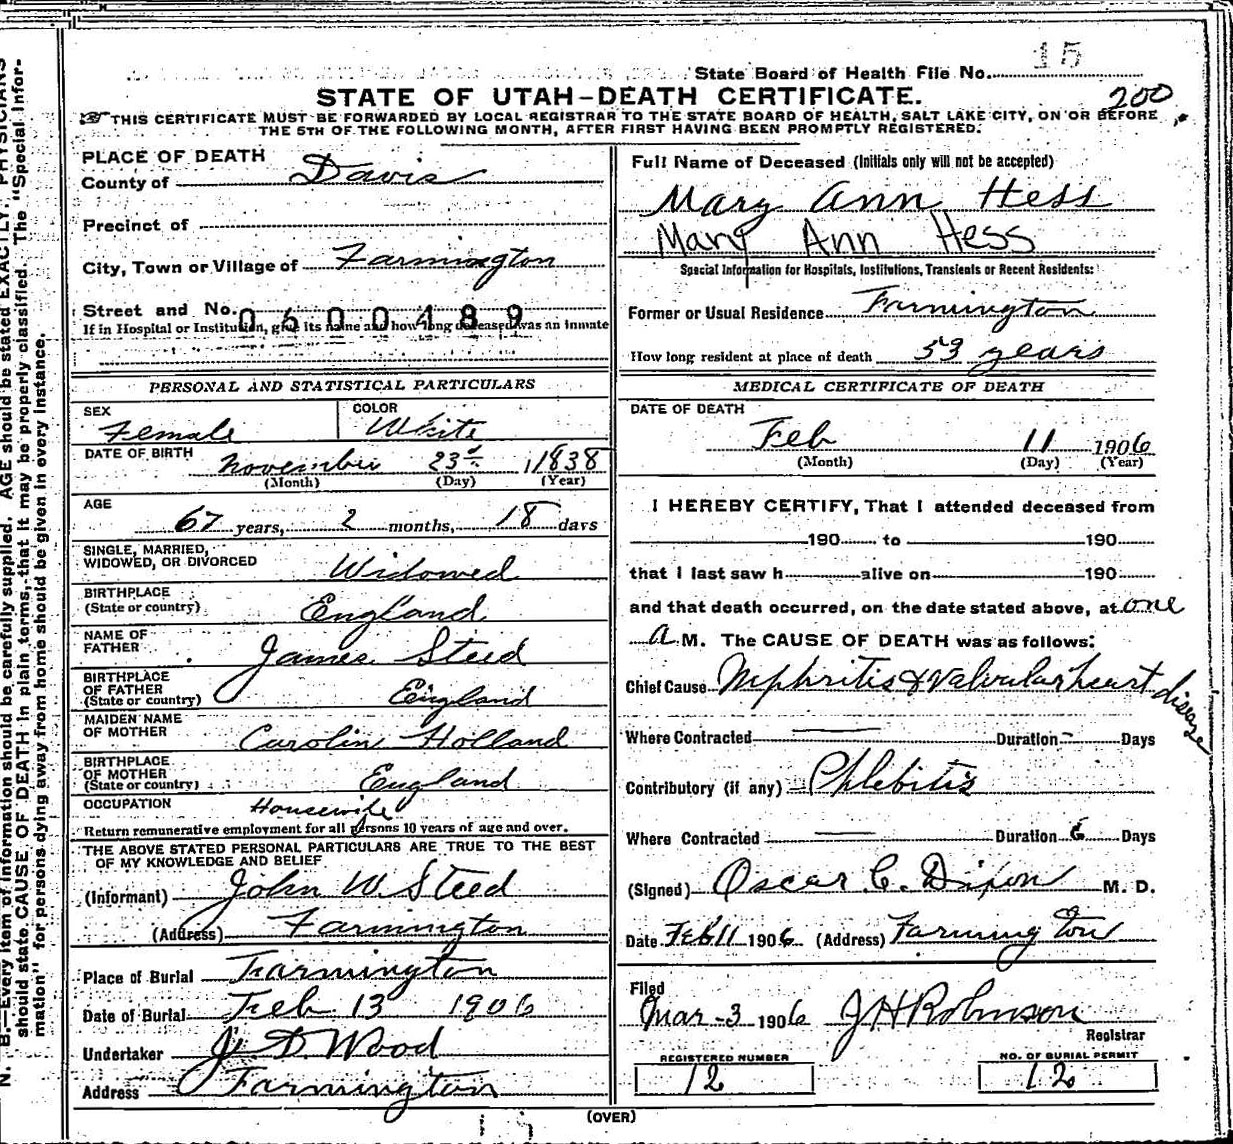 15
State Board of Health File No.
STATE OF UTAH–DEATH CERTIFICATE.
200
THIS CERTIFICATE MUST BE FORWARDED BY LOCAL REGISTRAR TO THE STATE BOARD OF HEALTH, SALT LAKE CITY, ON OR BEFORE
THE 5TH OF THE FOLLOWING MONTH, AFTER FIRST HAVING BEEN PROMPTLY REGISTERED.
PLACE OF DEATH
County of Davis
Precinct of
City, Town or Village of Farmington
Street and No. 0600489
If in Hospital or Institution, give its name and how long deceased was an inmate
PERSONAL AND STATISTICAL PARTICULARS
SEX Female
COLOR White
DATE OF BIRTH November 23d 1838
(Month) (Day) (Year)
AGE
67 years, 2 months, 18 days
SINGLE, MARRIED,
WIDOWED, OR DIVORCED Widowed
BIRTHPLACE
(State or country) England
NAME OF
FATHER James Steed
BIRTHPLACE
OF FATHER
(State or country) England
MAIDEN NAME
OF MOTHER Carolin Holland
BIRTHPLACE
OF MOTHER
(State or country) England
OCCUPATION Housewife
Return remunerative employment for all persons 10 years of age and over.
THE ABOVE STATED PERSONAL PARTICULARS ARE TRUE TO THE BEST
OF MY KNOWLEDGE AND BELIEF
(Informant) John W. Steed
(Address) Farmington
Place of Burial Farmington
Date of Burial Feb 13 1906
Undertaker J. D. Wood
Address Farmington
Full Name of Deceased (Initials only will not be accepted)
Mary Ann Hess
Mary Ann Hess
Special Information for Hospitals, Institutions, Transients or Recent Residents:
Former or Usual Residence Farmington
How long resident at place of death 53 years
MEDICAL CERTIFICATE OF DEATH
DATE OF DEATH
Feb 11 1906
(Month) (Day) (Year)
I HEREBY CERTIFY, That I attended deceased from
190 to 190
that I last saw h alive on 190
and that death occurred, on the date stated above, at one
a M. The CAUSE OF DEATH was as follows:
Chief Cause Nephritis & valvular heart disease
Where Contracted Duration Days
Contributory (if any) Phlebitis
Where Contracted Duration 6 Days
(Signed) Oscar C. Dixon M. D.
Date Feb 11 1906 (Address) Farmington
Filed
Mar-3 1906 J H Robinson
Registrar
REGISTERED NUMBER
12
NO. OF BURIAL PERMIT
12
(OVER)
15
N. B.—Every item of information should be carefully supplied. AGE should be stated EXACTLY. PHYSICIANS
should state CAUSE OF DEATH in plain terms, that it may be properly classified. The "Special Infor-
mation" for persons dying away from home should be given in every instance.